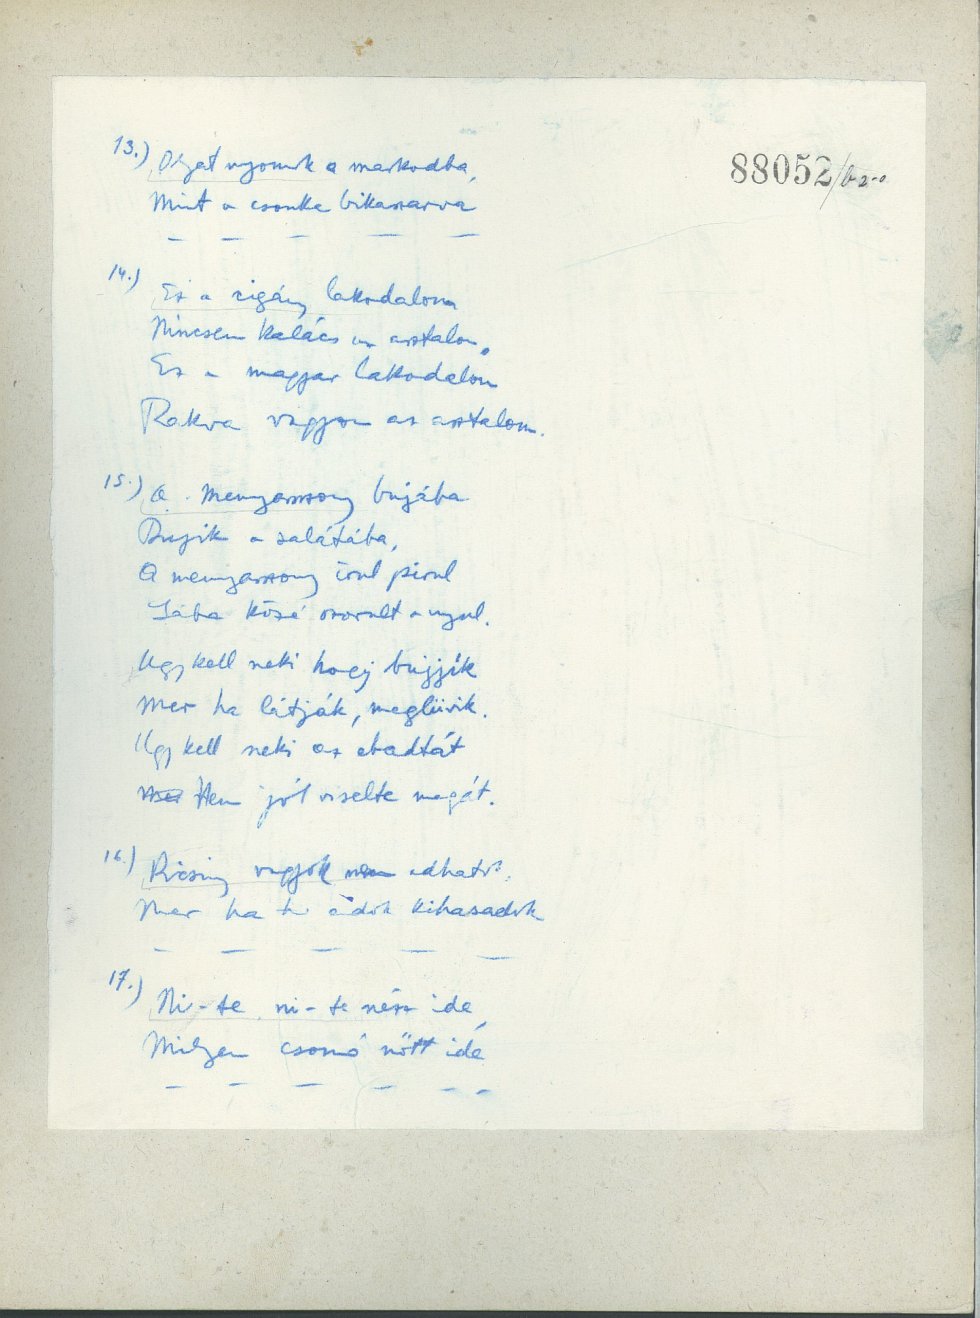 88052/b-2-0
13.) Olyat nyomok a markodba,
Mint a csonka bikaszarva
14.) Ez a cigány lakodalom
Nincsen kalács az asztalon,
Ez a magyar lakodalom
Rakva vagyon az asztalom.
15.) A menyasszony bujába
Bujik a salátába,
A menyasszony irul pirul
Lába közé szorult a nyul.
Ugy kell neki hogy bujjék
Mer ha látják, meglüvik.
Ugy kell neki az ebadtát
Nem jól viselte magát.
16.) Kicsiny vagyok nem adhatok,
Mer ha adok kihasadok
17.) Ni-te, ni-te néz ide,
Milyen csomó nőtt ide